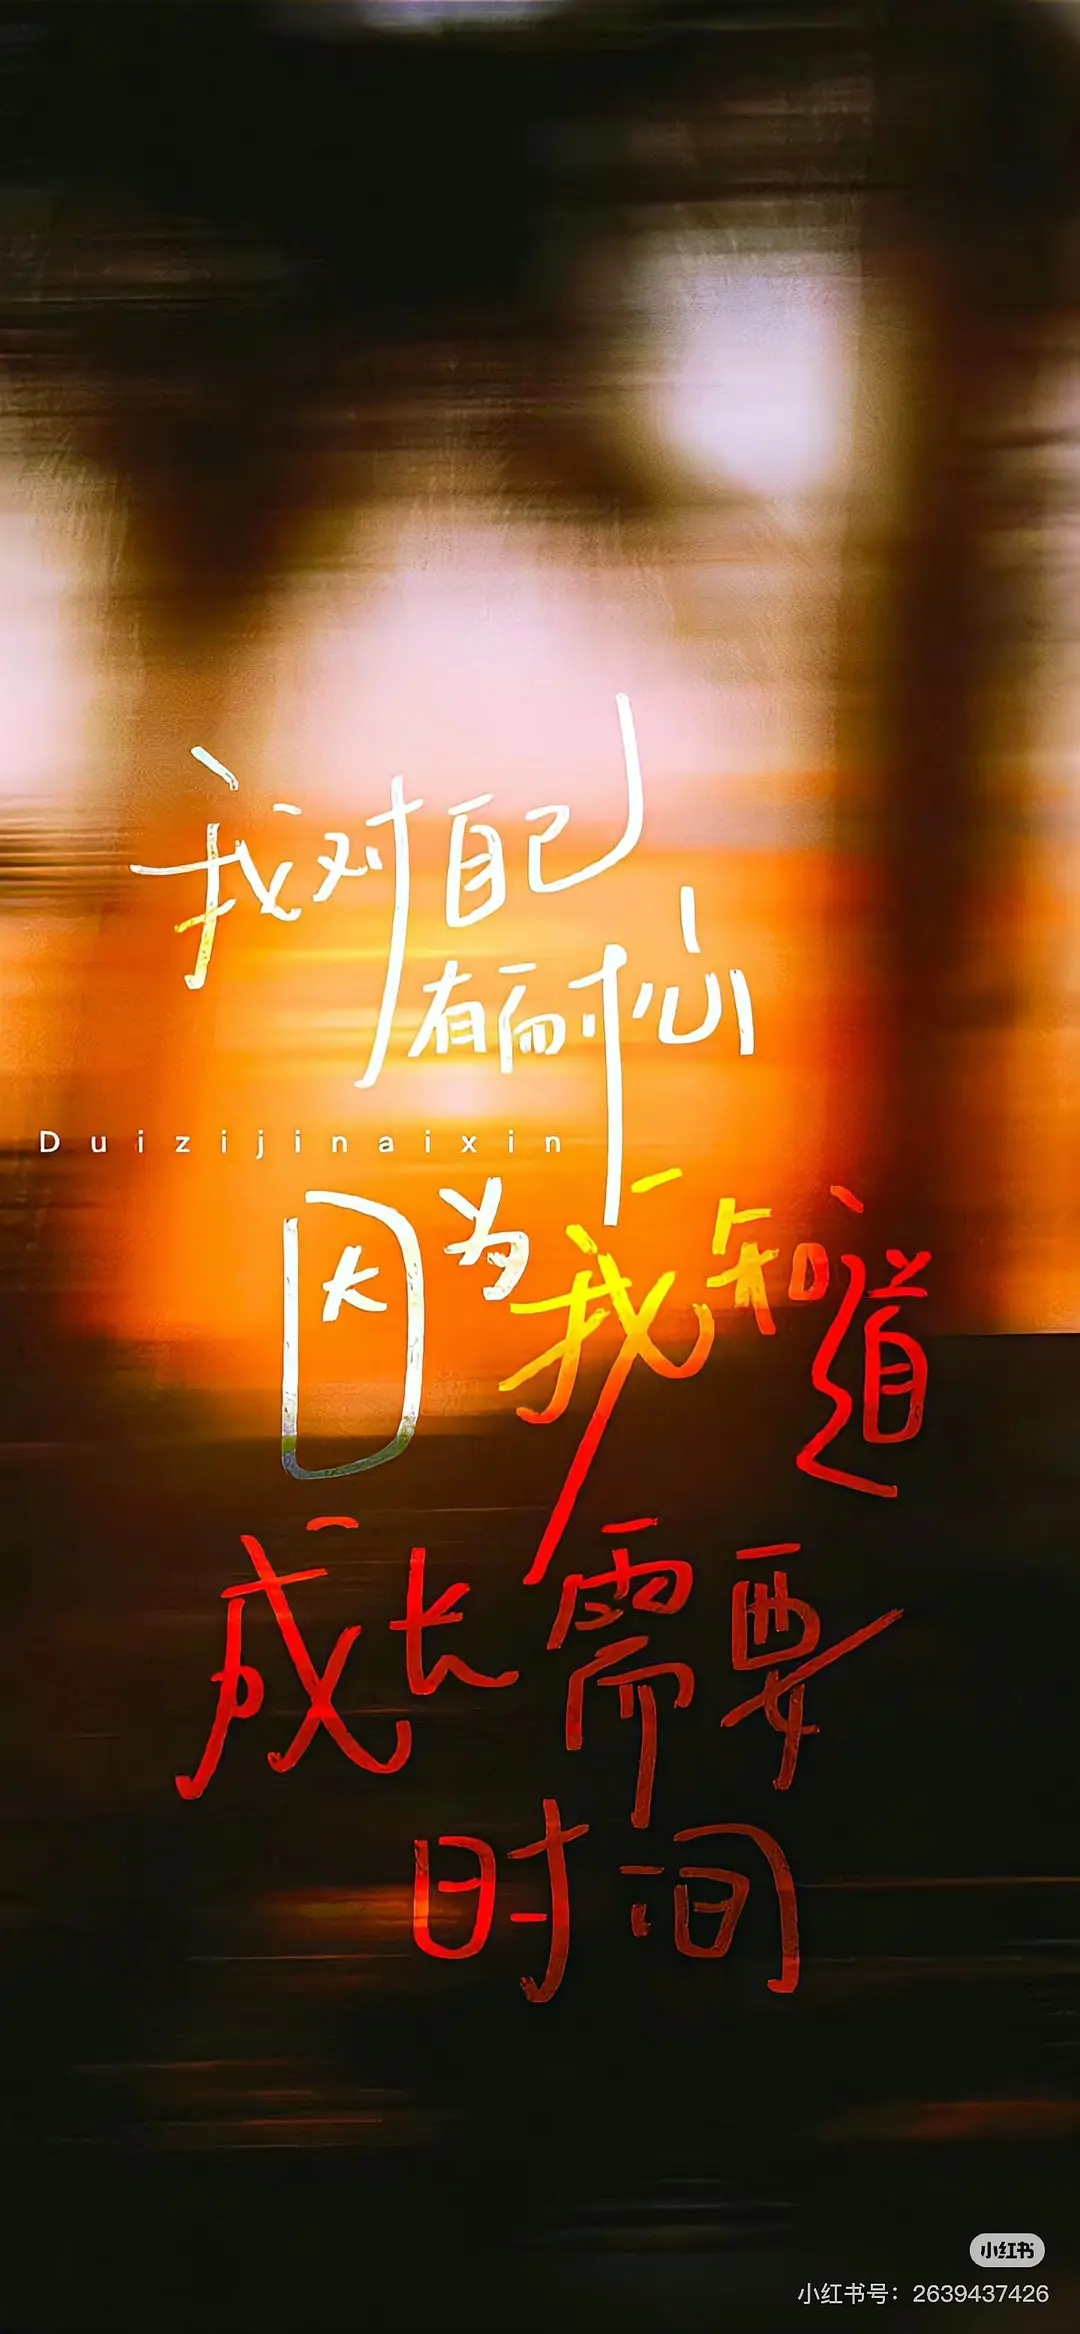 我对自己
有耐心
Duizijinaixin
因为我知道
成长需要
时间
小红书
小红书号：2639437426